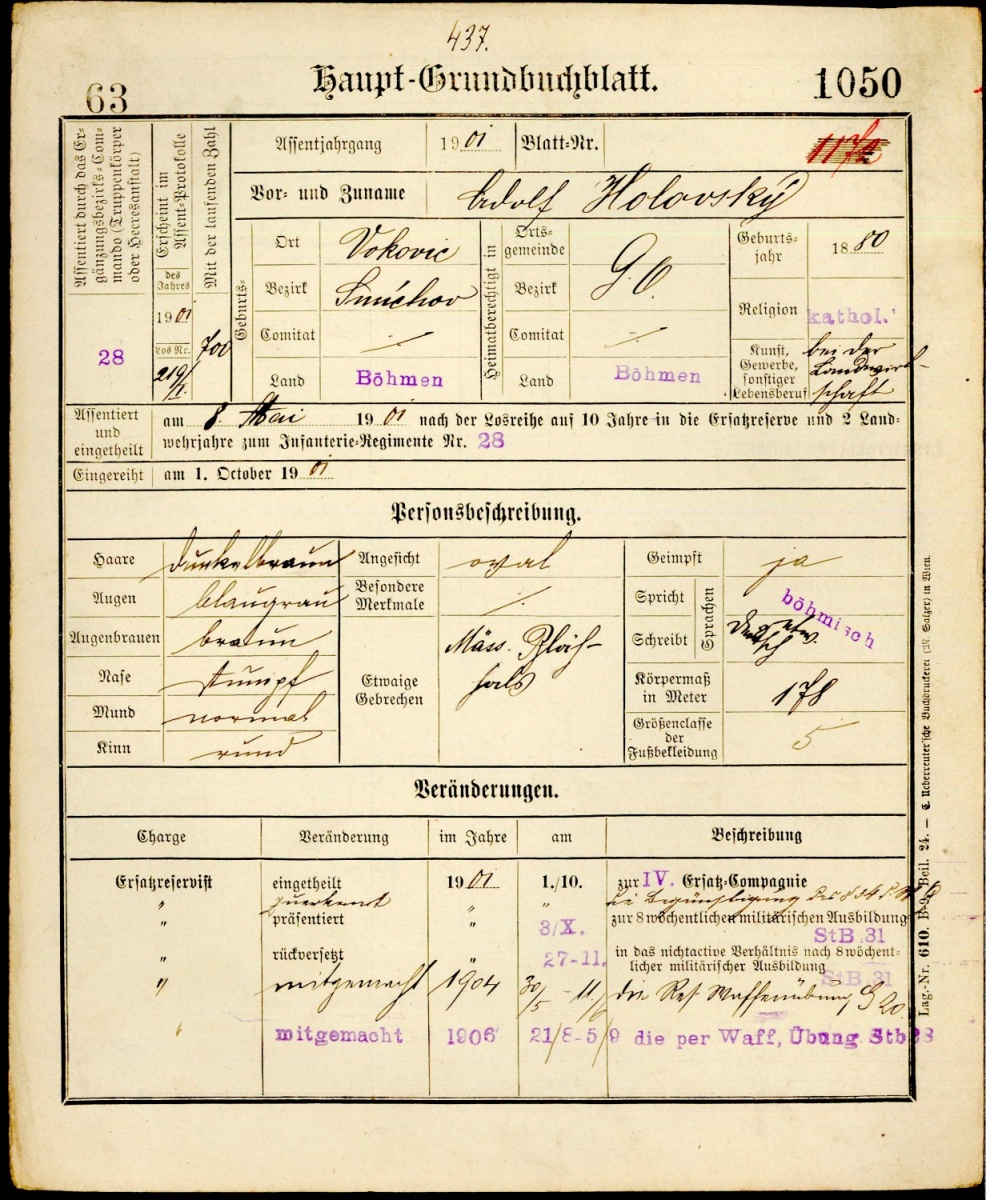 437.
63
Haupt-Grundbuchblatt.
1050
Assentiert durch das Er-
gänzungsbezirks-Com-
mando (Truppenkörper
oder Heeresanstalt)
28
Erscheint im
Assent-Protokolle
des
Jahres
1901
Los Nr.
219/I.
Mit der laufenden Zahl
700
Assentjahrgang 1901 Blatt-Nr.
Vor- und Zuname Adolf Holovský
Geburts-
Ort Vokovic
Bezirk Smíchov
Comitat ⁒
Land Böhmen
Heimatberechtigt in
Orts-
gemeinde
Bezirk G. O.
Comitat ⁒
Land Böhmen
Geburts-
jahr 1880
Religion kathol.
Kunst,
Gewerbe,
sonstiger
Lebensberuf
bei der
Landwirt-
schaft
Assentiert
und
eingetheilt
am 8. Mai 1901 nach der Losreihe auf 10 Jahre in die Ersatzreserve und 2 Land-
wehrjahre zum Infanterie-Regimente Nr. 28
Eingereiht am 1. October 1901
Personsbeschreibung.
Haare dunkelbraun
Augen blaugrau
Augenbrauen braun
Nase stumpf
Mund normal
Kinn rund
Angesicht oval
Besondere
Merkmale ⁒
Etwaige
Gebrechen
Mäss. Bläh-
hals
Geimpft ja
Spricht
Schreibt
Sprachen
böhmisch
deutsch etw.
Körpermaß
in Meter 178
Größenclasse
der
Fußbekleidung 5
Veränderungen.
Charge Veränderung im Jahre am Beschreibung
Ersatzreservist eingetheilt 1901 1./10. zur IV. Ersatz-Compagnie
" zuerkannt " " die Begünstigung des § 34
" präsentiert " 3/X. zur 8 wöchentlichen militärischen Ausbildung
StB 31
" rückversetzt " 27-11. in das nichtactive Verhältnis nach 8 wöchent-
licher militärischer Ausbildung
StB 31
" mitgemacht 1904 30/5 - 11./6 die Res. Waffenübung
" mitgemacht 1906 21/8-5/9 die per Waff, Übung Stb 28
Lag.-Nr. 610. B-9, Beil. 24. — C. Ueberreuter'sche Buchdruckerei (M. Salzer) in Wien.